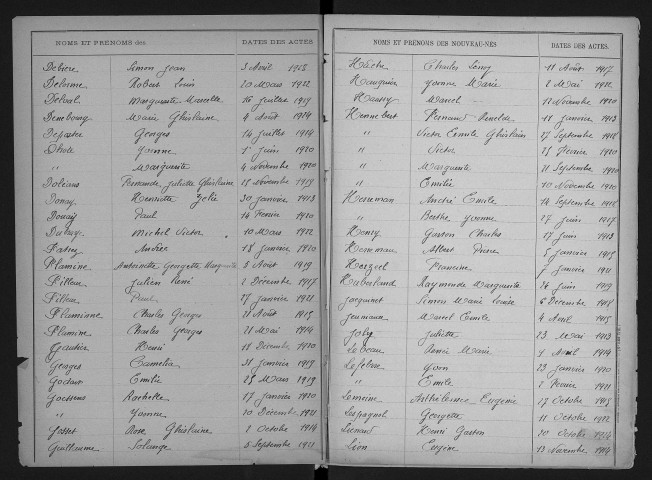 NOMS ET PRÉNOMS des
DATES DES ACTES
Debière Simon Jean 3 Août 1915
Delorme Robert Louis 20 Mars 1922
Delval Marguerite Marcelle 16 Juillet 1919
Denebourg Marie Ghislaine 4 Août 1914
Depastre Georges 14 Juillet 1914
Dhote Yvonne 1er Juin 1920
" Marguerite 4 Novembre 1920
Doléans Fernande Juliette Ghislaine 15 Novembre 1919
Donay Henriette Zélie 30 Janvier 1913
Douay Paul 14 Février 1920
Dubray Michel Victor 10 Mars 1922
Andrée 18 Janvier 1920
Flamine Antoinette Georgette Marguerite 5 Août 1919
Fillon Julien René 2 Décembre 1917
Fillon Paul 27 Janvier 1921
Flaminne Charles Georges 11 Août 1915
Flamine Charles Georges 21 Mai 1914
Gautier Henri 18 Décembre 1920
Georges Camélia 31 Janvier 1919
Godart Emilie 25 Mars 1919
Goessens Rachelle 17 Janvier 1920
" Yvonne 20 Décembre 1921
Gosset Rose Ghislaine 2 Octobre 1914
Guillaume Solange 5 Septembre 1921
NOMS ET PRÉNOMS DES NOUVEAU-NÉS
DATES DES ACTES.
Charles 11 Août 1917
Yvonne Marie 2 Mai 1922
Marcel 12 Novembre 1920
Hennebert Fernand 18 Janvier 1913
" Victor Emile Ghislain 27 Septembre 1918
" Victor 25 Février 1920
" Marguerite 21 Septembre 1920
" Emilie 10 Novembre 1920
Heereman André Emile 14 Septembre 1918
" Berthe Yvonne 27 Juin 1917
Henry Gaston Charles 17 Juin 1913
Hereman Albert Pierre 5 Janvier 1915
Herzeel Francine 7 Janvier 1921
Huberland Raymonde Marguerite 24 Juin 1919
Jacquinet Simon Marie Louise 6 Décembre 1918
Jeumann Marcel Emile 4 Avril 1915
Joly Juliette 23 Mai 1913
Lebeau René Marie 4 Avril 1914
Lefebvre Yvon 23 Janvier 1920
" Emile 2 Février 1921
Lemoine Eugénie 17 Octobre 1915
Lespagnol Georgette 11 Octobre 1922
Lienard Henri Gaston 20 Octobre
Lion Eugène 13 Novembre 1914